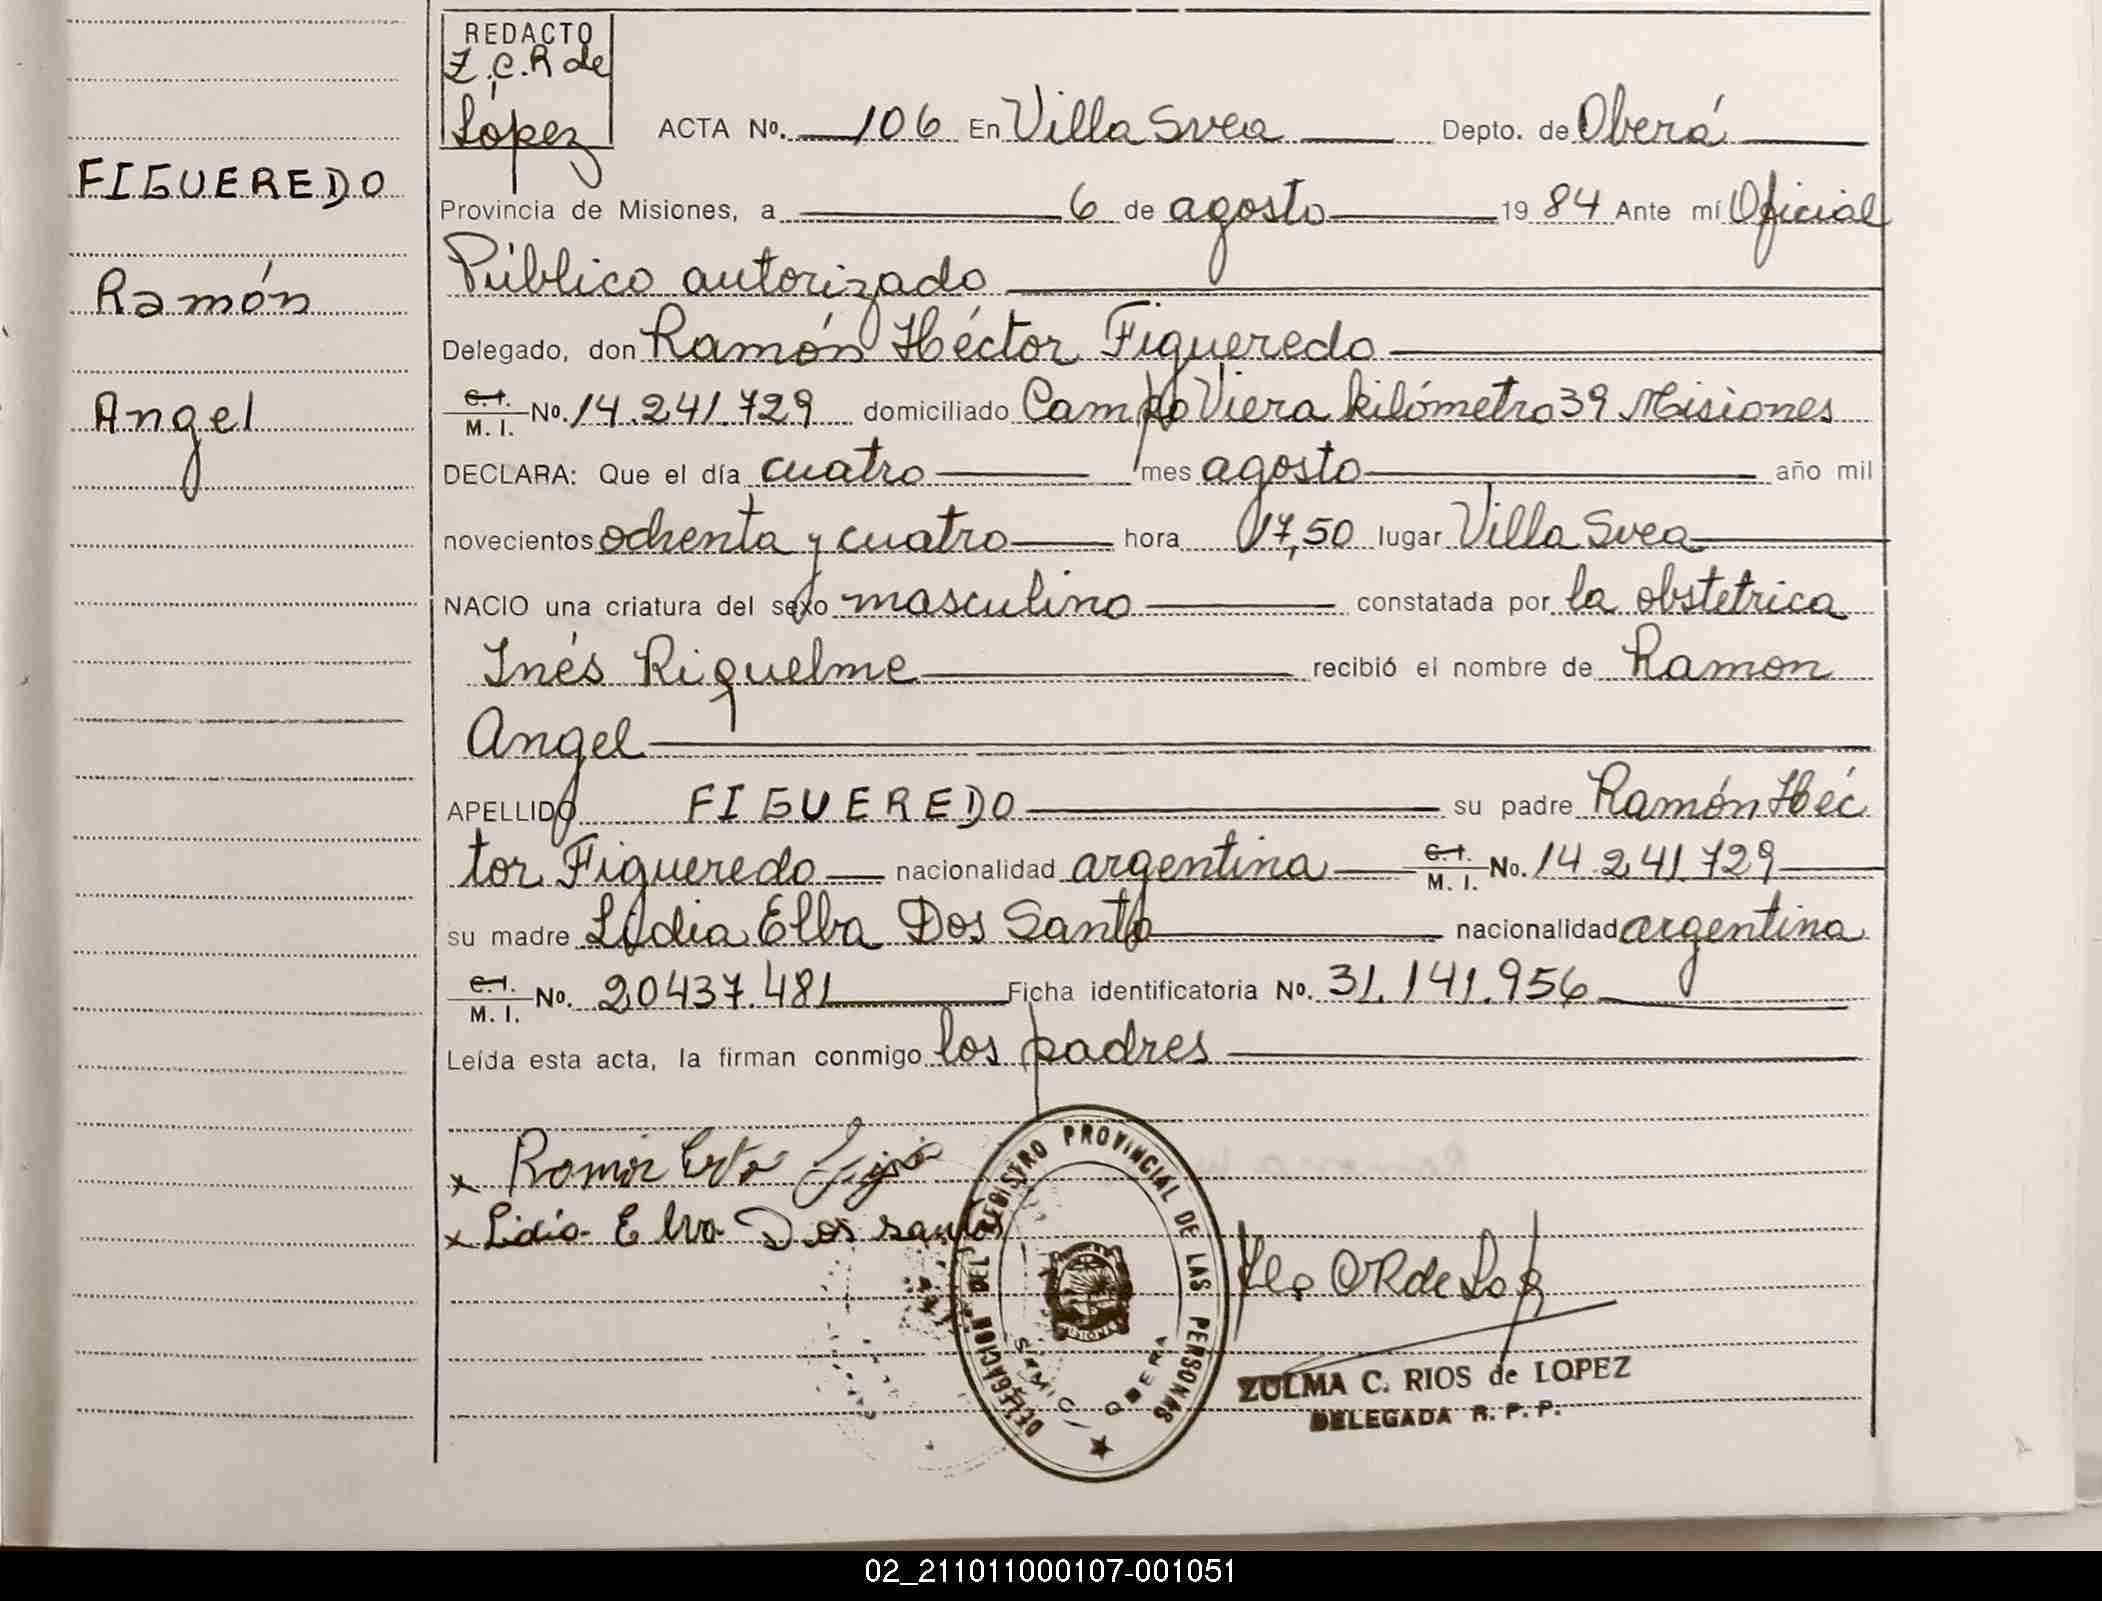 REDACTO
Z.C.R de
López
ACTA No. 106 En Villa Svea Depto. de Oberá
FIGUEREDO
Provincia de Misiones, a 6 de agosto 19 84 Ante mí Oficial
Público autorizado
Ramón
Delegado, don Ramón Héctor Figueredo
Angel
C.I. M.I. No. 14.241.729 domiciliado Campo Viera kilómetro 39 Misiones
DECLARA: Que el día cuatro mes agosto año mil
novecientos ochenta y cuatro hora 17,50 lugar Villa Svea
NACIO una criatura del sexo masculino constatada por la obstetrica
Inés Riquelme recibió el nombre de Ramon
Angel
APELLIDO FIGUEREDO su padre Ramón Héc
tor Figueredo nacionalidad argentina C.I. M.I. No. 14.241.729
su madre Lidia Elba Dos Santo nacionalidad argentina
C.I. M.I. No. 20437.481 Ficha identificatoria No. 31.141.956
Leída esta acta, la firman conmigo los padres
x Ramón
x Lidia Elva Dos santos
DELEGACION DEL REGISTRO PROVINCIAL DE LAS PERSONAS
OBERA
ZULMA C. RIOS de LOPEZ
DELEGADA R.P.P.
02_211011000107-001051